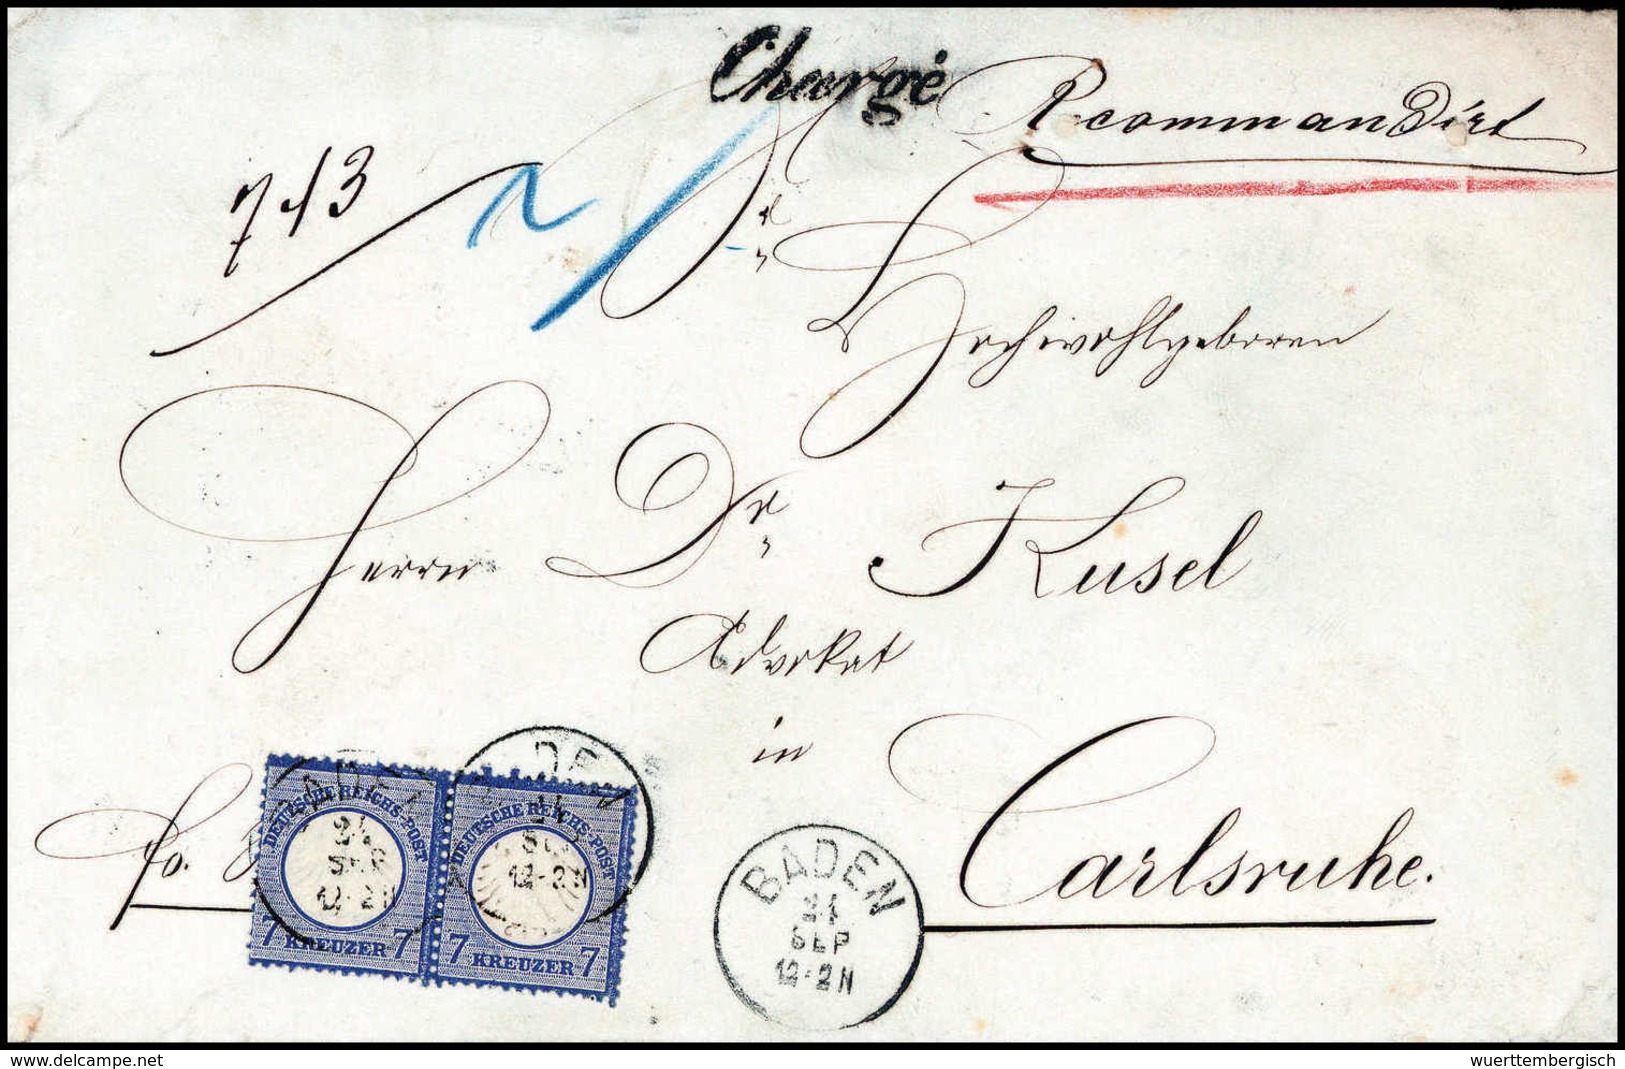 Chargé
Recommandirt
713
Sr
Hochwohlgeboren
Herrn Dr Kusel
Advokat
in
Carlsruhe.
fo.
DEUTSCHE REICHS-POST
7 KREUZER 7
DEUTSCHE REICHS-POST
7 KREUZER 7
BADEN
24
SEP
12-2N
BADEN
24
SEP
12-2N
BADEN
24
SEP
12-2N
delcampe.net
wuerttembergisch